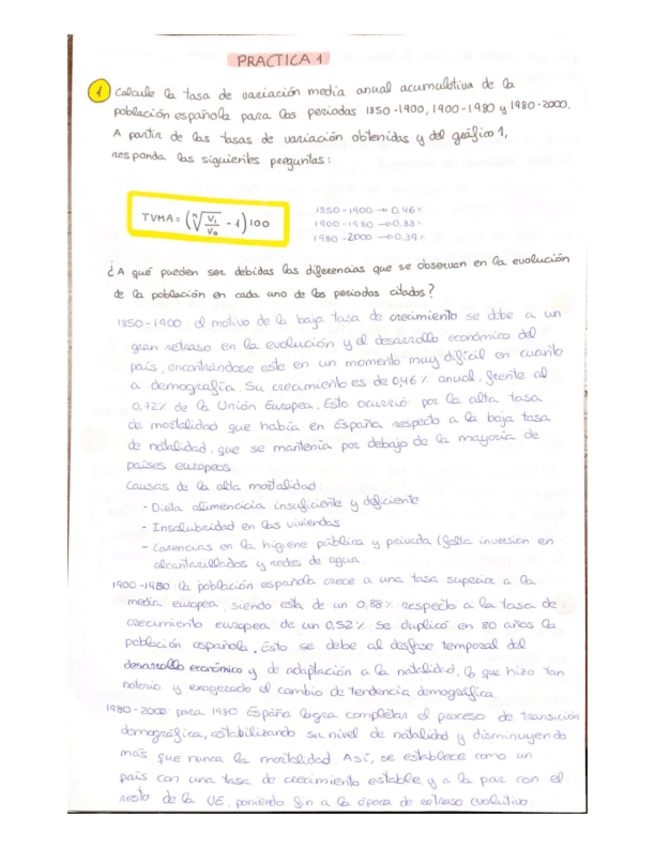 PRACTICA 1
1 Calcule la tasa de variación media anual acumulativa de la
población española para los periodos 1850-1900, 1900-1980 y 1980-2000.
A partir de las tasas de variación obtenidas y del gráfico 1,
responda las siguientes preguntas:
TVMA = (ⁿ√(V₁/V₀) - 1) 100
1850-1900 → 0,46%
1900-1980 → 0,88%
1980-2000 → 0,39%
¿A qué pueden ser debidas las diferencias que se observan en la evolución
de la población en cada uno de los periodos citados?
1850-1900: el motivo de la baja tasa de crecimiento se debe a un
gran retraso en la evolución y el desarrollo económico del
país, encontrándose este en un momento muy difícil en cuanto
a demografía. Su crecimiento es de 0,46% anual, frente al
0,72% de la Unión Europea. Esto ocurrió por la alta tasa
de mortalidad que había en España respecto a la baja tasa
de natalidad, que se mantenía por debajo de la mayoría de
países europeos.
Causas de la alta mortalidad:
- Dieta alimenticia insuficiente y deficiente
- Insalubridad en las viviendas
- Carencias en la higiene pública y privada (falta inversion en
alcantarillados y redes de agua.
1900-1980: la población española crece a una tasa superior a la
media europea, siendo esta de un 0,88% respecto a la tasa de
crecimiento europea de un 0,52%. Se duplicó en 80 años la
población española. Esto se debe al desfase temporal del
desarrollo económico y de adaptación a la natalidad, lo que hizo tan
notorio y exagerado el cambio de tendencia demográfica.
1980-2000: para 1980 España logra completar el proceso de transición
demográfica, estabilizando su nivel de natalidad y disminuyendo
más que nunca la mortalidad. Así, se establece como un
país con una tasa de crecimiento estable y a la par con el
resto de la UE, poniendo fin a la época de retraso evolutivo.